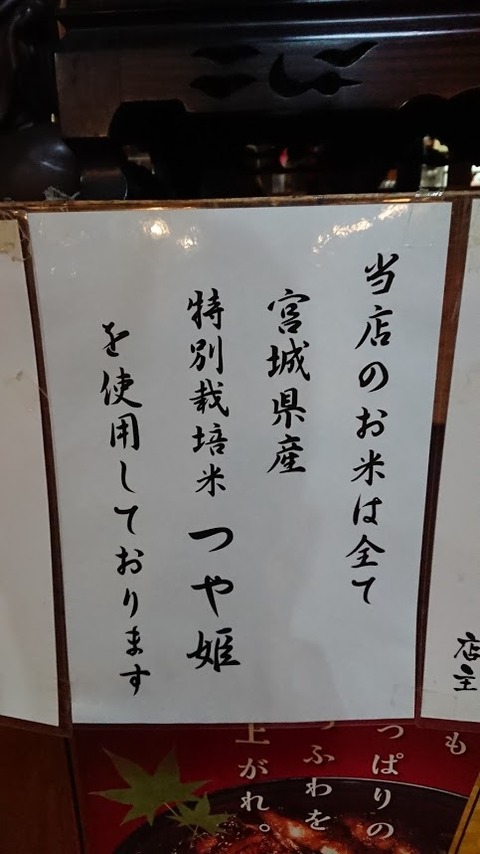 当店のお米は全て
宮城県産
特別栽培米 つや姫
を使用しております
店主
も
っぱりの
ふわを
上がれ。